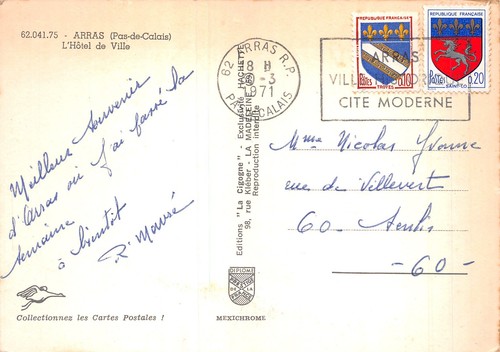 62.041.75 - ARRAS (Pas-de-Calais)
L'Hôtel de Ville
Meilleur souvenir
d'Arras où j'ai passé la
semaine
à bientôt
Collectionnez les Cartes Postales !
Editions "La Cigogne" - Exclusivité HACHETTE
98, rue Kléber - LA MADELEINE
Reproduction interdite
DIPLOME
MEXICHROME
62 ARRAS R.P.
8 H
-3
1971
PAS-DE-CALAIS
ARRAS
CITE MODERNE
REPUBLIQUE FRANÇAISE
Postes 0,10
TROYES
REPUBLIQUE FRANÇAISE
Postes 0,20
SAINT-LO
Mme Nicolas Yvonne
rue de Villevert
60 Senlis
- 60 -